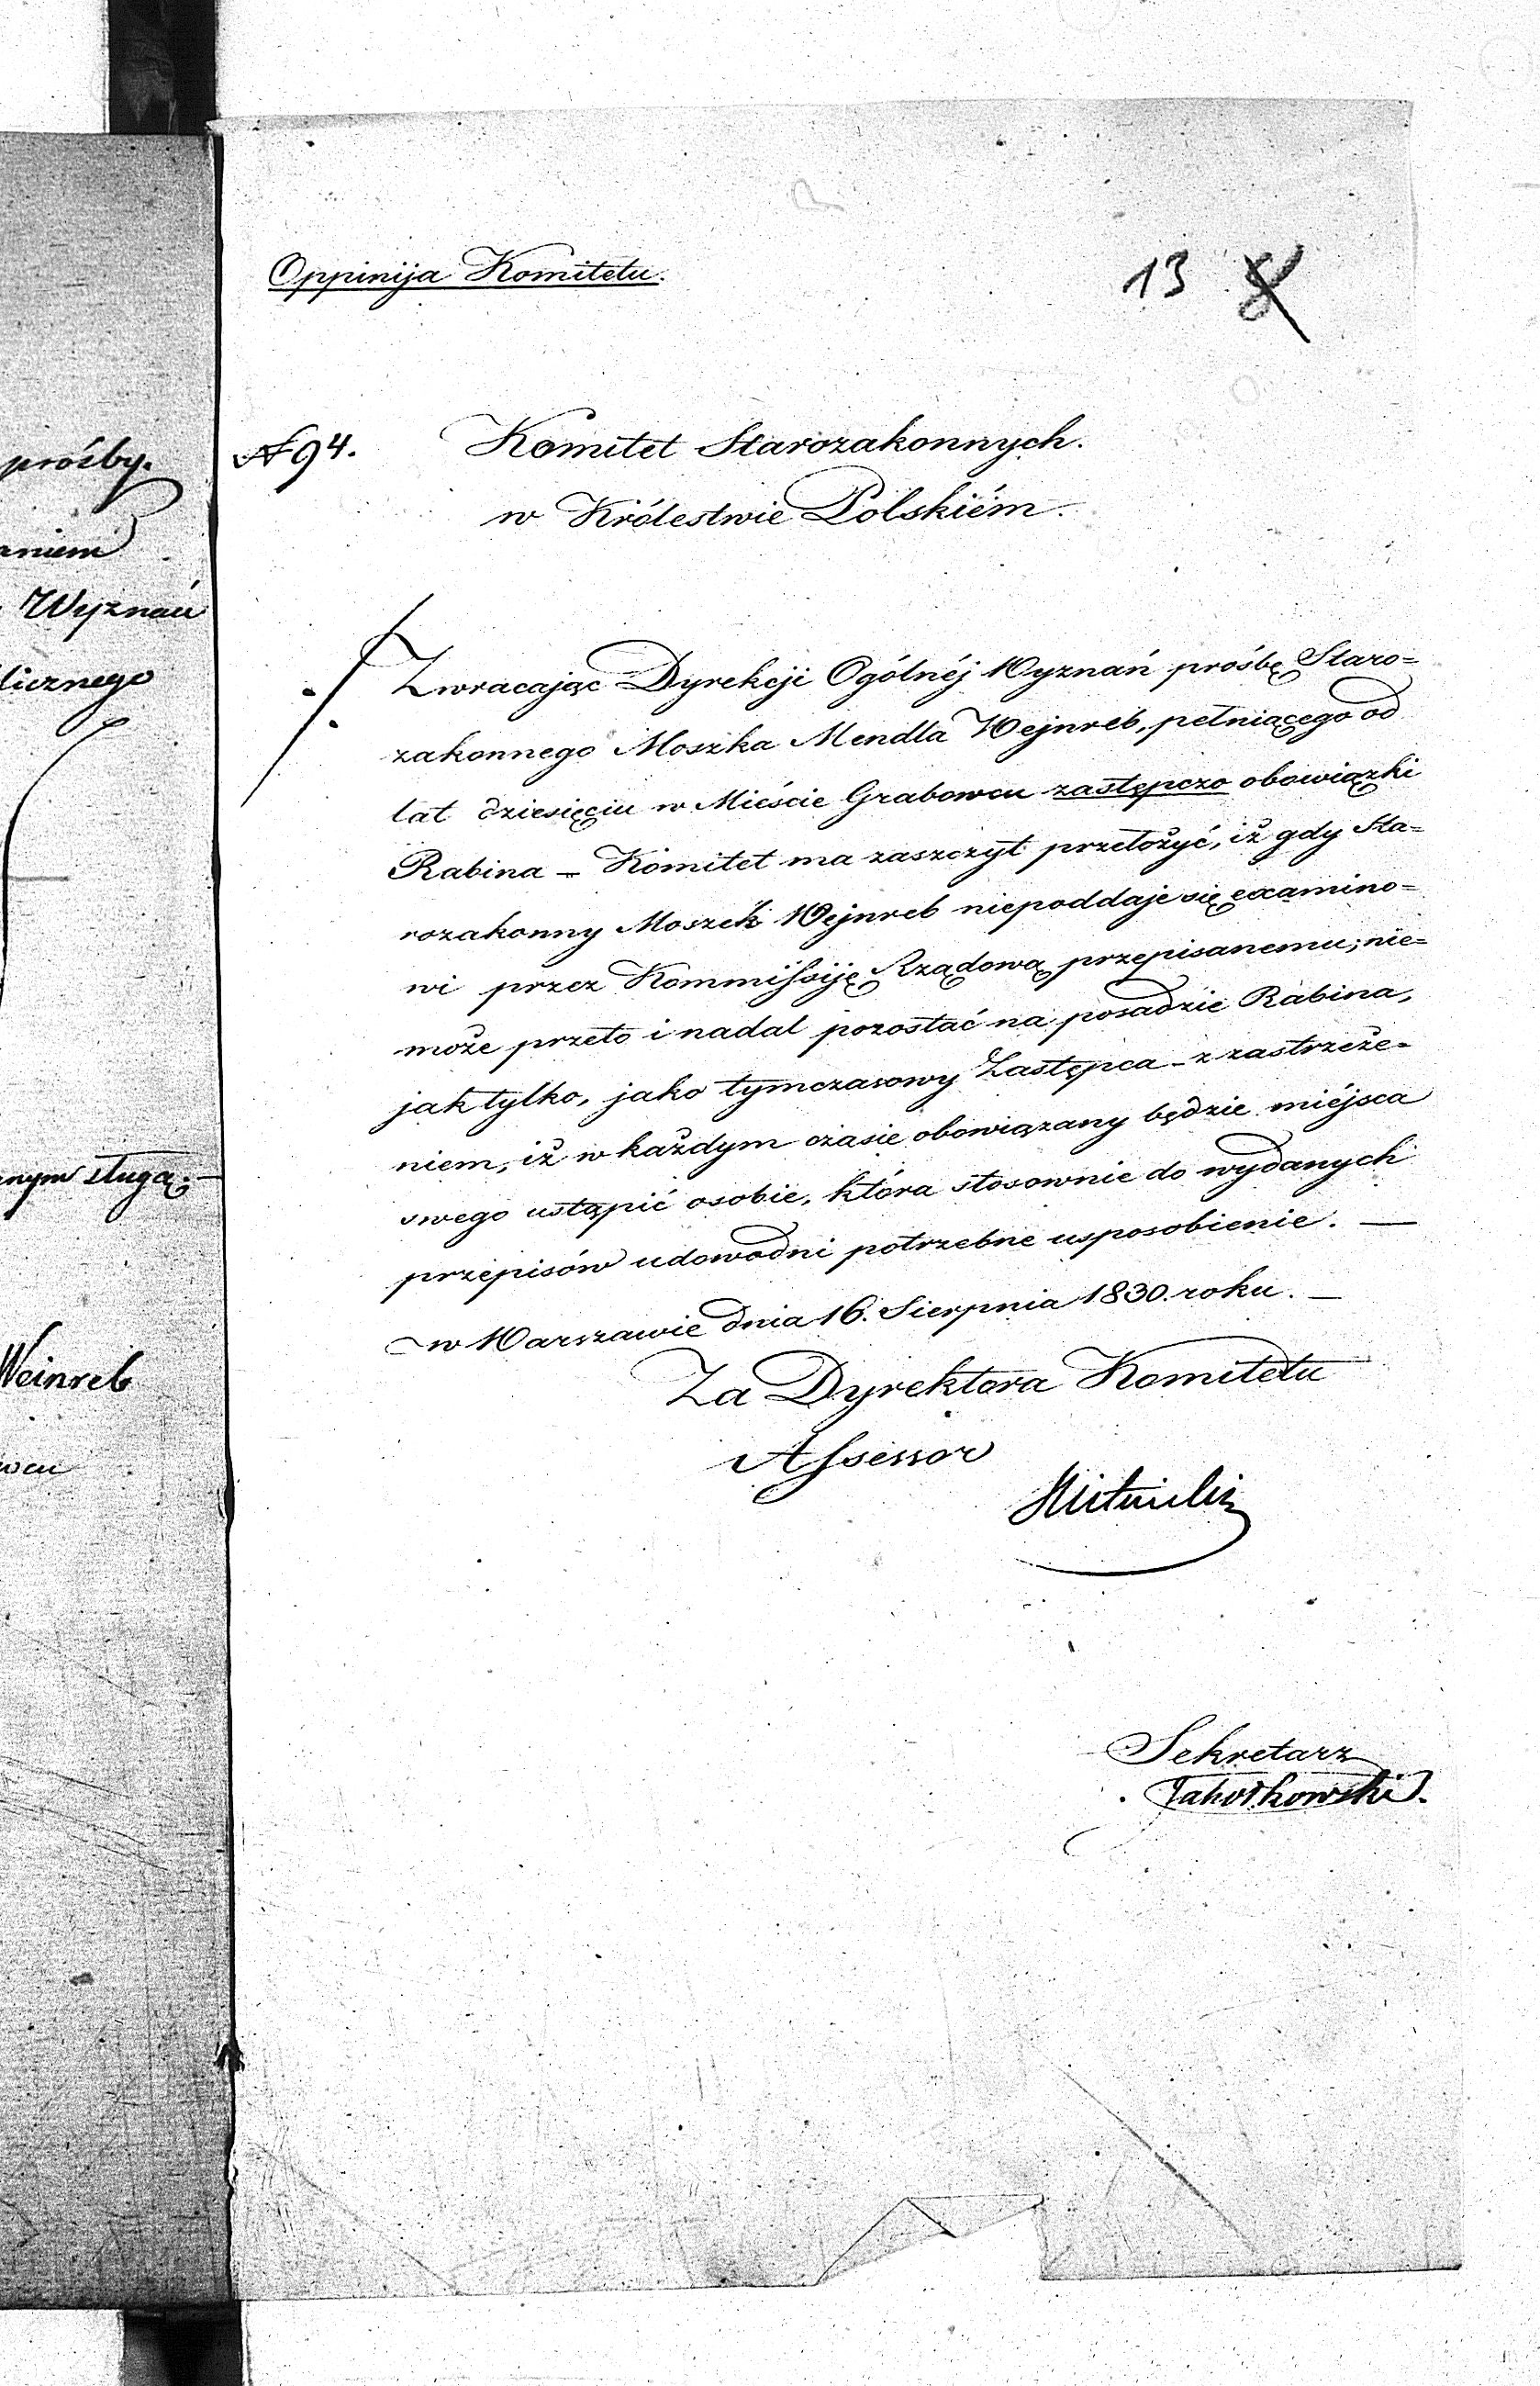 prośby.
Wyznań
licznego
sługą.
Weinreb
Oppinija Komitetu.
13 8
N 94.
Komitet Starozakonnych.
w Królestwie Polskiém.
Zwracając Dyrekcji Ogólnéj Wyznań prośbę Staro=
zakonnego Moszka Mendla Wejnreb, pełniącego od
lat dziesięciu w Mieście Grabowcu zastępczo obowiązki
Rabina – Komitet ma zaszczyt przełożyć, iż gdy Sta=
rozakonny Moszek Wejnreb niepoddaje się examino=
wi przez Kommissiję Rządową przepisanemu; nie=
może przeto i nadal pozostać na posadzie Rabina,
jak tylko, jako tymczasowy Zastępca – z zastrzeże=
niem, iż w każdym czasie obowiązany będzie miéjsca
swego ustąpić osobie, która stosownie do wydanych
przepisów udowodni potrzebne usposobienie. —
w Warszawie dnia 16. Sierpnia 1830. roku. —
Za Dyrektora Komitetu
Assessor
Sekretarz